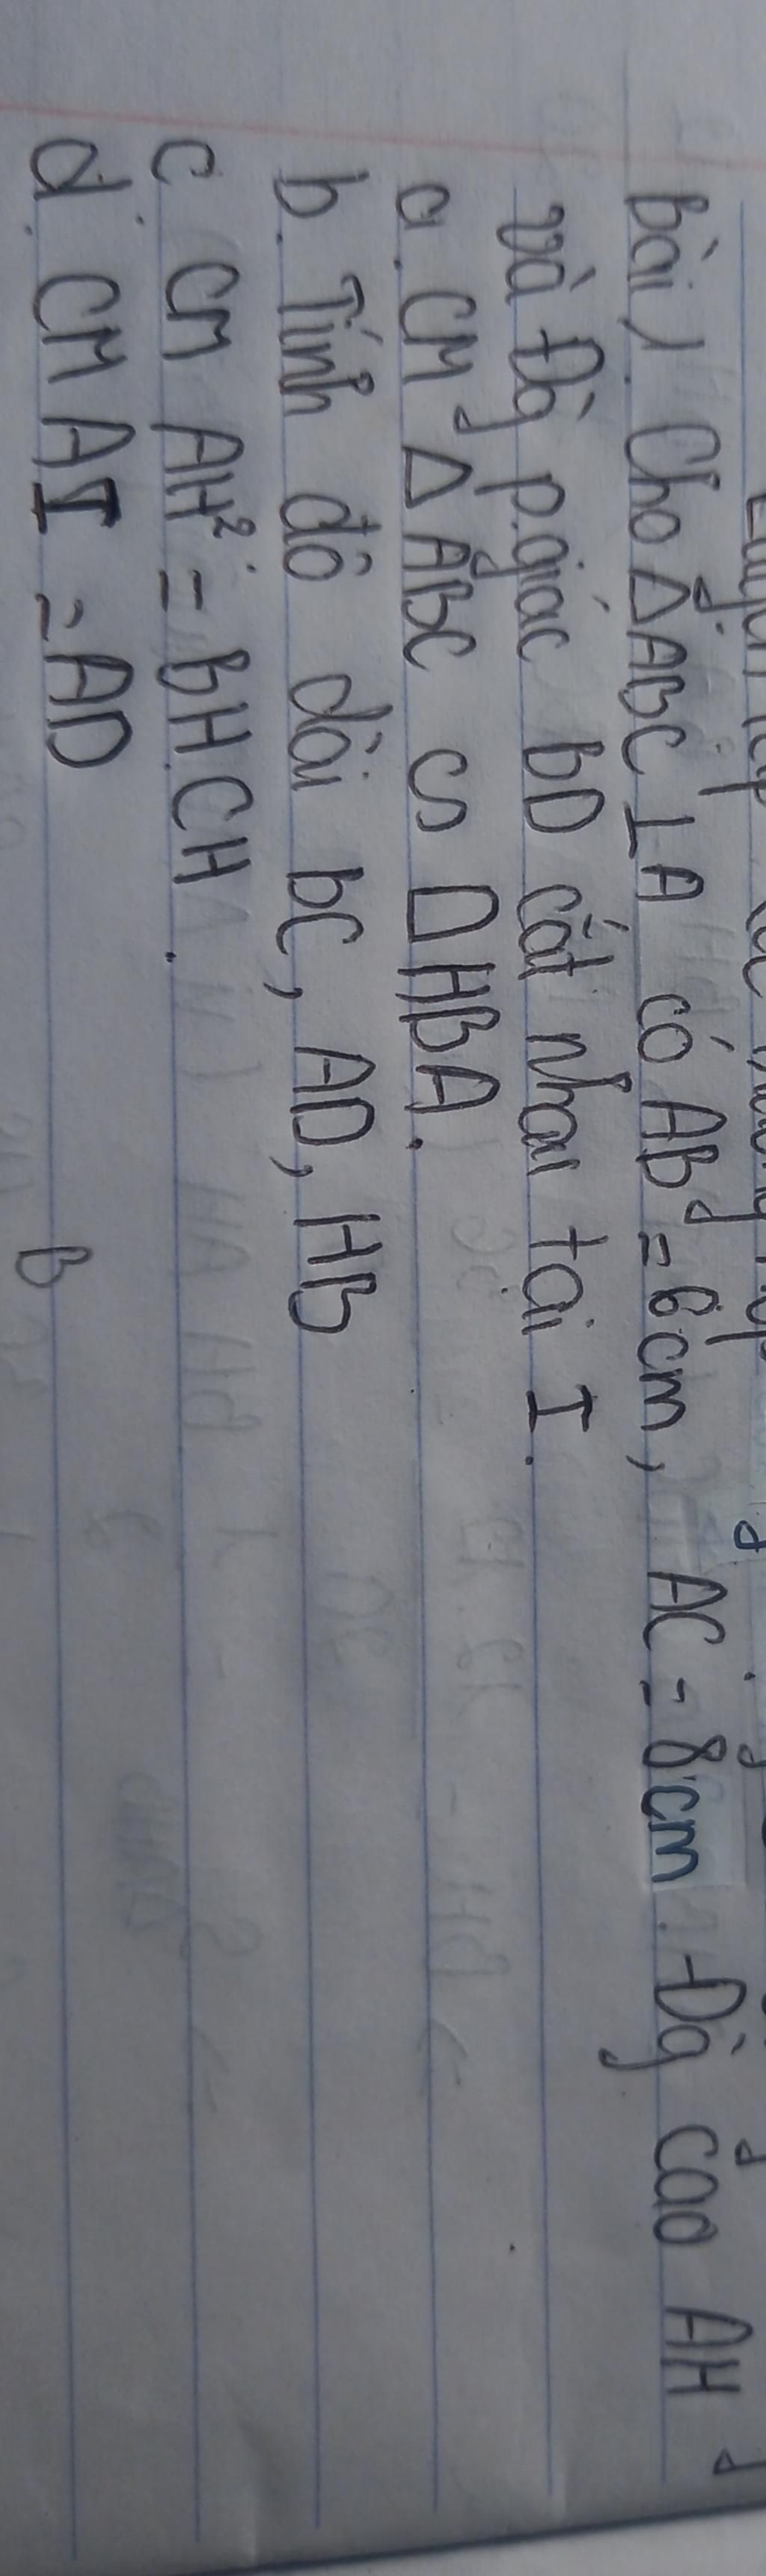 Bài 1. Cho Δ ABC ⊥ A có AB = 6cm, AC = 8cm. Đg cao AH
và Đg p.giác BD cắt nhau tại I.
a. CM Δ ABC ᔕ Δ HBA.
b. Tính độ dài BC, AD, HB
c. CM AH² = BH.CH.
d. CM AI = AD
B